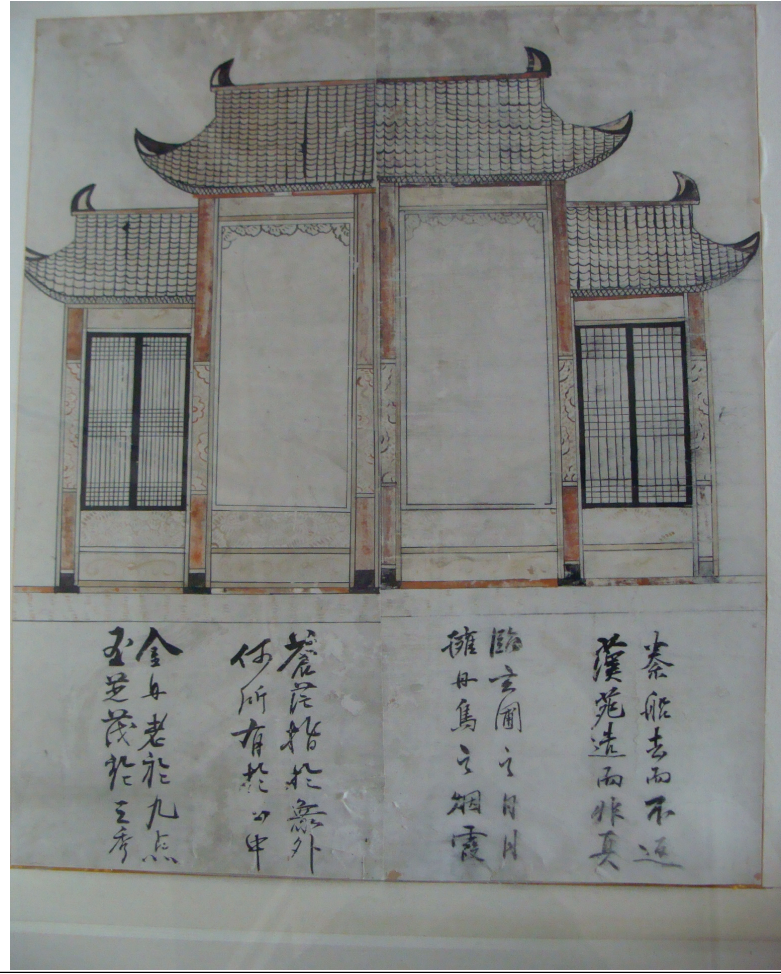 秦船去而不返
漢苑造而非真
臨玄圃之日月
擁丹之烟霞
蒼茫指於無外
何所有於中
金丹老於九点
玉芝茂於三秀